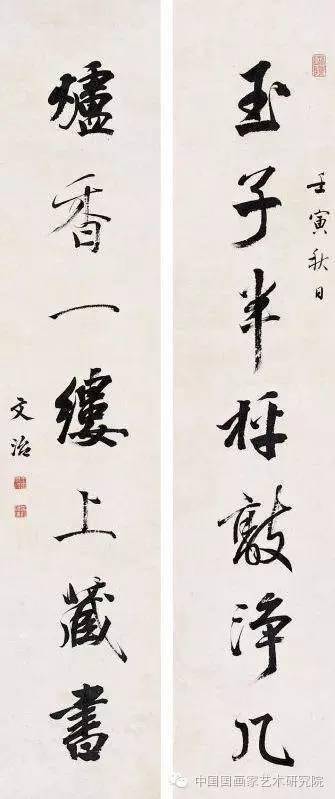 玉子半枰敲淨几
壬寅秋日
爐香一縷上藏書
文治
中国国画家艺术研究院